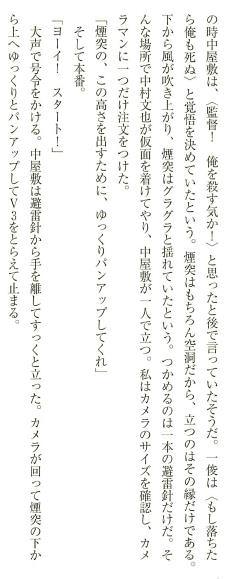 の時中屋敷は、〈監督！　俺を殺す気か！〉と思ったと後で言っていたそうだ。一俊は〈もし落ちた
ら俺も死ぬ〉と覚悟を決めていたという。煙突はもちろん空洞だから、立つのはその縁だけである。
下から風が吹き上がり、煙突はグラグラと揺れていたという。つかめるのは一本の避雷針だけだ。そ
んな場所で中村文也が仮面を着けてやり、中屋敷が一人で立つ。私はカメラのサイズを確認し、カメ
ラマンに一つだけ注文をつけた。
「煙突の、この高さを出すために、ゆっくりパンアップしてくれ」
そして本番。
「ヨーイ！　スタート！」
大声で号令をかける。中屋敷は避雷針から手を離してすっくと立った。カメラが回って煙突の下か
ら上へゆっくりとパンアップしてV3をとらえて止まる。